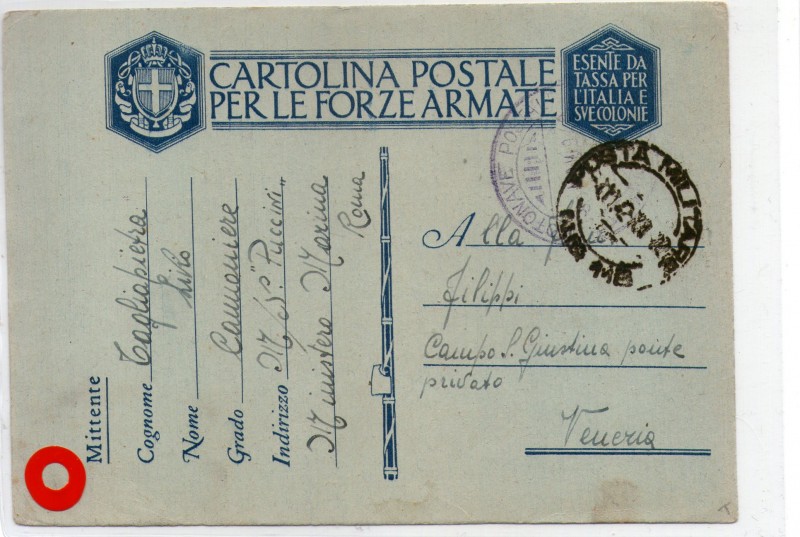 CARTOLINA POSTALE
PER LE FORZE ARMATE
ESENTE DA
TASSA PER
L'ITALIA E
SVE COLONIE
POSTA MILITARE
Mittente
Cognome Tagliapietra
Nome Livio
Grado Cannoniere
Indirizzo M/N "Puccini"
Ministero Marina
Roma
Alla
Filippi
Campo S. Giustina ponte
privato
Venezia